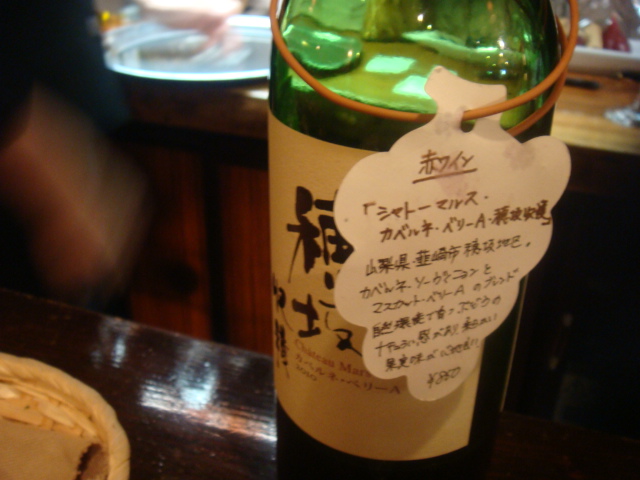 赤ワイン
「シャトーマルス・
カベルネ・ベリーA・穂坂収穫」
山梨県・韮崎市穂坂地区。
カベルネ・ソーヴィニョンと
マスカット・ベリーAのブレンド
果実味が
¥850
穂坂
収穫
Château Mars
カベルネ・ベリーA
2010